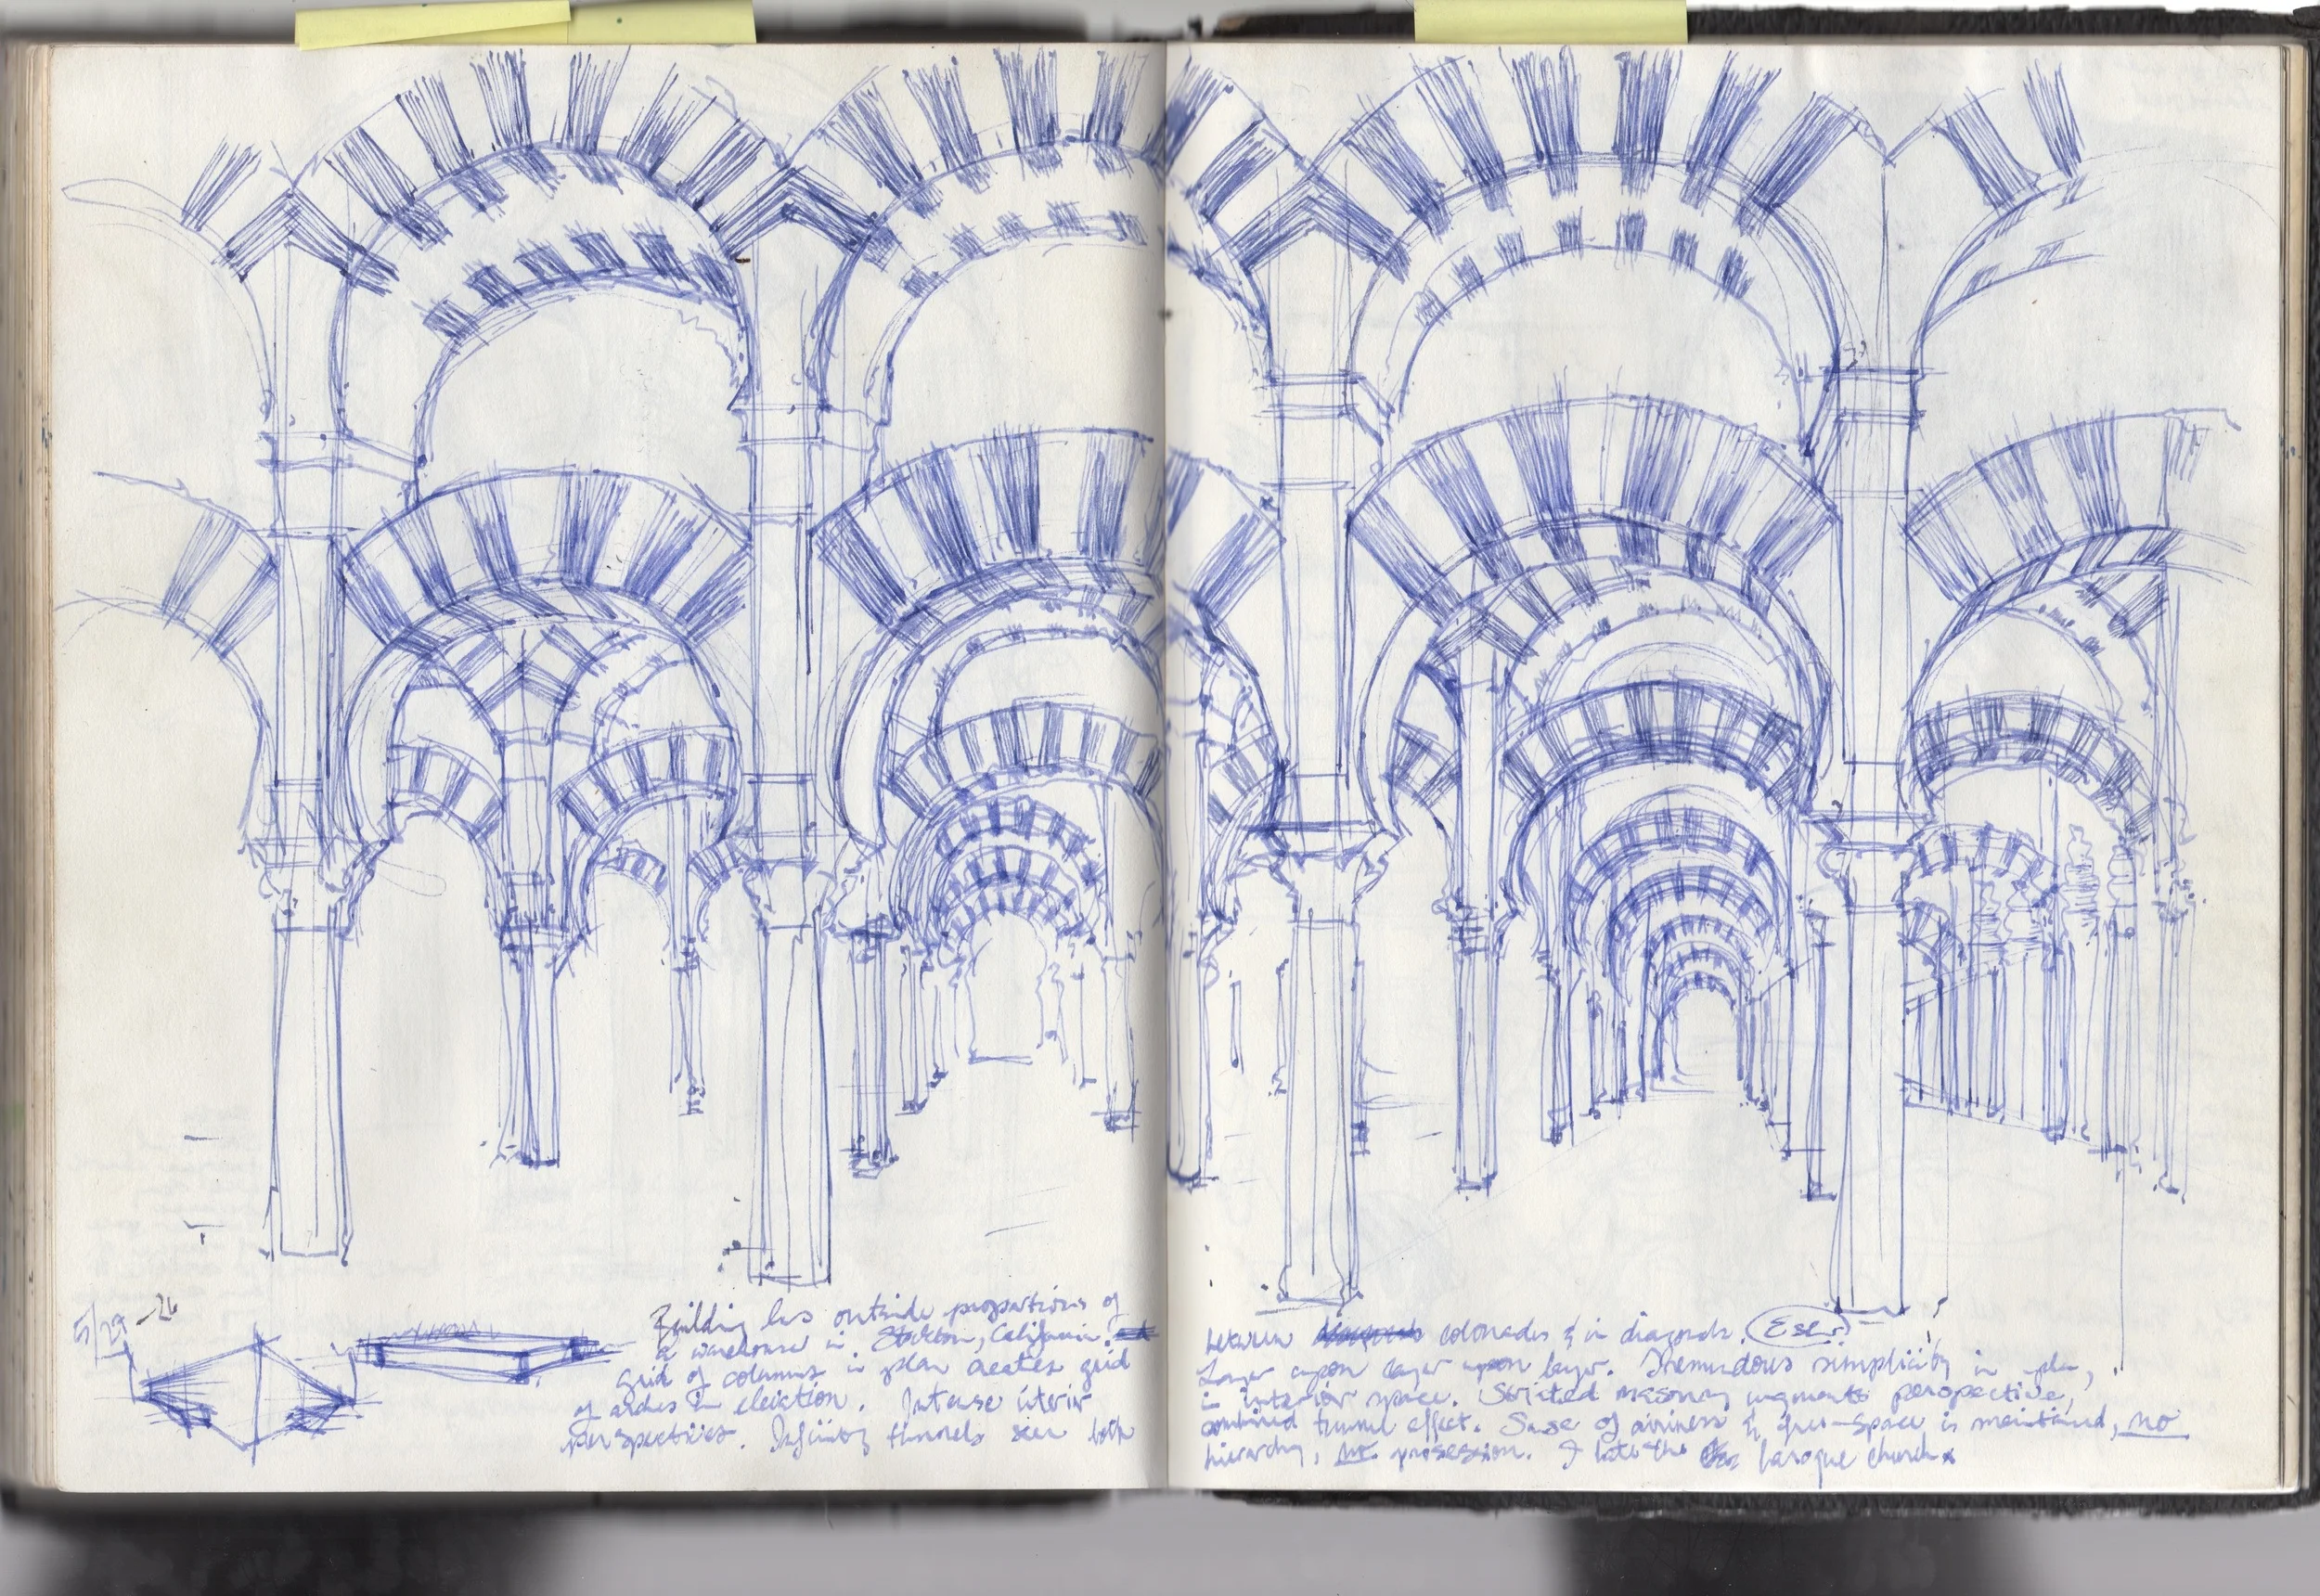 5/29 -26
Building has outside proportions of
a warehouse in Stockton, California.
grid of columns in plan creates grid
of arches in elevation. Intense interior
perspectives. Infinity tunnels seen both
between colonades & in diagonals.
Layer upon layer upon layer. Tremendous simplicity in plan,
in interior space. Striated masonry augments perspective,
combined tunnel effect. Sense of airiness & open-space is maintained, no
hierarchy, no procession. I hate the baroque church